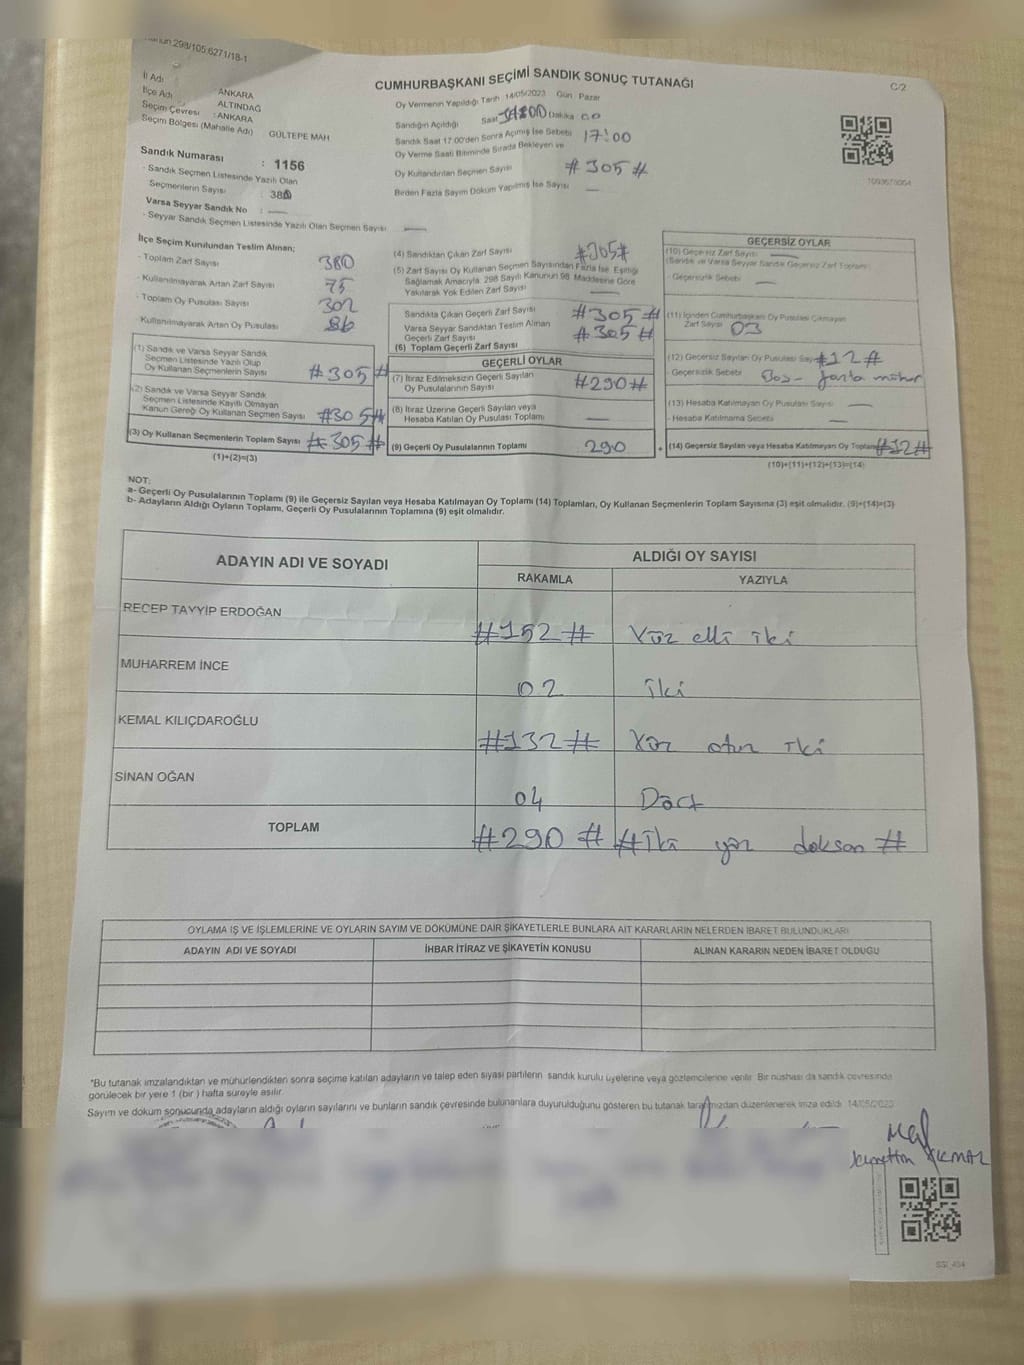 298/105.6271/18-1
CUMHURBAŞKANI SEÇİMİ SANDIK SONUÇ TUTANAĞI
C/2
İl Adı : ANKARA
İlçe Adı : ALTINDAĞ
Seçim Çevresi : ANKARA
Seçim Bölgesi (Mahalle Adı) GÜLTEPE MAH
Sandık Numarası : 1156
- Sandık Seçmen Listesinde Yazılı Olan
Seçmenlerin Sayısı :
Varsa Seyyar Sandık No : —
- Seyyar Sandık Seçmen Listesinde Yazılı Olan Seçmen Sayısı —
Oy Vermenin Yapıldığı Tarih 14/05/2023 Gün Pazar
Sandığın Açıldığı Saat Dakika 00
Sandık Saat 17:00'den Sonra Açımış İse Sebebi 17:00
Oy Verme Saati Bitiminde Sırada Bekleyen ve
Oy Kullandırılan Seçmen Sayısı #305#
Birden Fazla Sayım Döküm Yapılmış İse Sayısı —
İlçe Seçim Kurulundan Teslim Alınan;
- Toplam Zarf Sayısı 380
- Kullanılmayarak Artan Zarf Sayısı 75
- Toplam Oy Pusulası Sayısı 302
- Kullanılmayarak Artan Oy Pusulası 86
(1) Sandık ve Varsa Seyyar Sandık
Seçmen Listesinde Yazılı Olup
Oy Kullanan Seçmenlerin Sayısı #305#
(2) Sandık ve Varsa Seyyar Sandık
Seçmen Listesinde Kayıtlı Olmayan
Kanun Gereği Oy Kullanan Seçmen Sayısı #305#
(3) Oy Kullanan Seçmenlerin Toplam Sayısı #305#
(1)+(2)=(3)
(4) Sandıktan Çıkan Zarf Sayısı #305#
(5) Zarf Sayısı Oy Kullanan Seçmen Sayısından Fazla İse, Eşitliği
Sağlamak Amacıyla, 298 Sayılı Kanunun 98. Maddesine Göre
Yakılarak Yok Edilen Zarf Sayısı —
Sandıkta Çıkan Geçerli Zarf Sayısı #305#
Varsa Seyyar Sandıktan Teslim Alınan
Geçerli Zarf Sayısı #305#
(6) Toplam Geçerli Zarf Sayısı
GEÇERLİ OYLAR
(7) İtiraz Edilmeksizin Geçerli Sayılan
Oy Pusulalarının Sayısı #290#
(8) İtiraz Üzerine Geçerli Sayılan veya
Hesaba Katılan Oy Pusulası Toplamı —
(9) Geçerli Oy Pusulalarının Toplamı 290
GEÇERSİZ OYLAR
(10) Geçersiz Zarf Sayısı —
(Sandık ve Varsa Seyyar Sandık Geçersiz Zarf Toplamı)
- Geçersizlik Sebebi —
(11) İçinden Cumhurbaşkanı Oy Pusulası Çıkmayan
Zarf Sayısı 03
(12) Geçersiz Sayılan Oy Pusulası Sayısı #12#
Geçersizlik Sebebi Boş - fazla mühür
(13) Hesaba Katılmayan Oy Pusulası Sayısı —
- Hesaba Katılmama Sebebi —
+ (14) Geçersiz Sayılan veya Hesaba Katılmayan Oy Toplamı #12#
(10)+(11)+(12)+(13)=(14)
NOT:
a- Geçerli Oy Pusulalarının Toplamı (9) ile Geçersiz Sayılan veya Hesaba Katılmayan Oy Toplamı (14) Toplamları, Oy Kullanan Seçmenlerin Toplam Sayısına (3) eşit olmalıdır. (9)+(14)=(3)
b- Adayların Aldığı Oyların Toplamı, Geçerli Oy Pusulalarının Toplamına (9) eşit olmalıdır.
ADAYIN ADI VE SOYADI ALDIĞI OY SAYISI
RAKAMLA YAZIYLA
RECEP TAYYİP ERDOĞAN #152# Yüz elli iki
MUHARREM İNCE 02 iki
KEMAL KILIÇDAROĞLU #132# Yüz otuz iki
SİNAN OĞAN 04 Dört
TOPLAM #290# #İki yüz doksan#
OYLAMA İŞ VE İŞLEMLERİNE VE OYLARIN SAYIM VE DÖKÜMÜNE DAİR ŞİKAYETLERLE BUNLARA AİT KARARLARIN NELERDEN İBARET BULUNDUKLARI
ADAYIN ADI VE SOYADI İHBAR İTİRAZ VE ŞİKAYETİN KONUSU ALINAN KARARIN NEDEN İBARET OLDUĞU
*Bu tutanak imzalandıktan ve mühürlendikten sonra seçime katılan adayların ve talep eden siyasi partilerin sandık kurulu üyelerine veya gözlemcilerine verilir. Bir nüshası da sandık çevresinde
görülecek bir yere 1 (bir) hafta süreyle asılır.
Sayım ve döküm sonucunda adayların aldığı oyların sayılarını ve bunların sandık çevresinde bulunanlara duyurulduğunu gösteren bu tutanak tarafımızdan düzenlenerek imza edildi. 14/05/2023